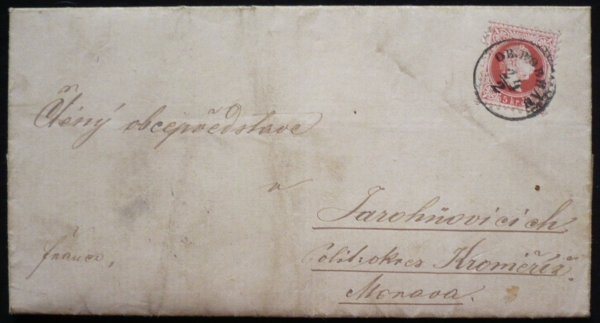 Ctěný obcepředstave
v
Jarohňovicích
Polit. okres Kroměříž.
Morava.
franco,
5 kr